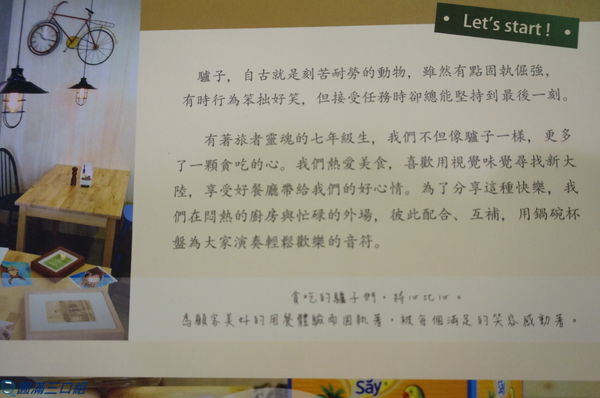 Let's start!
驢子，自古就是刻苦耐勞的動物，雖然有點固執倔強，
有時行為笨拙好笑，但接受任務時卻總能堅持到最後一刻。
有著旅者靈魂的七年級生，我們不但像驢子一樣，更多
了一顆貪吃的心。我們熱愛美食，喜歡用視覺味覺尋找新大
陸，享受好餐廳帶給我們的好心情。為了分享這種快樂，我
們在悶熱的廚房與忙碌的外場，彼此配合、互補，用鍋碗杯
盤為大家演奏輕鬆歡樂的音符。
貪吃的驢子們，將心比心。
為顧客美好的用餐體驗而固執著，被每個滿足的笑容感動著。
圓滿三口組
Say